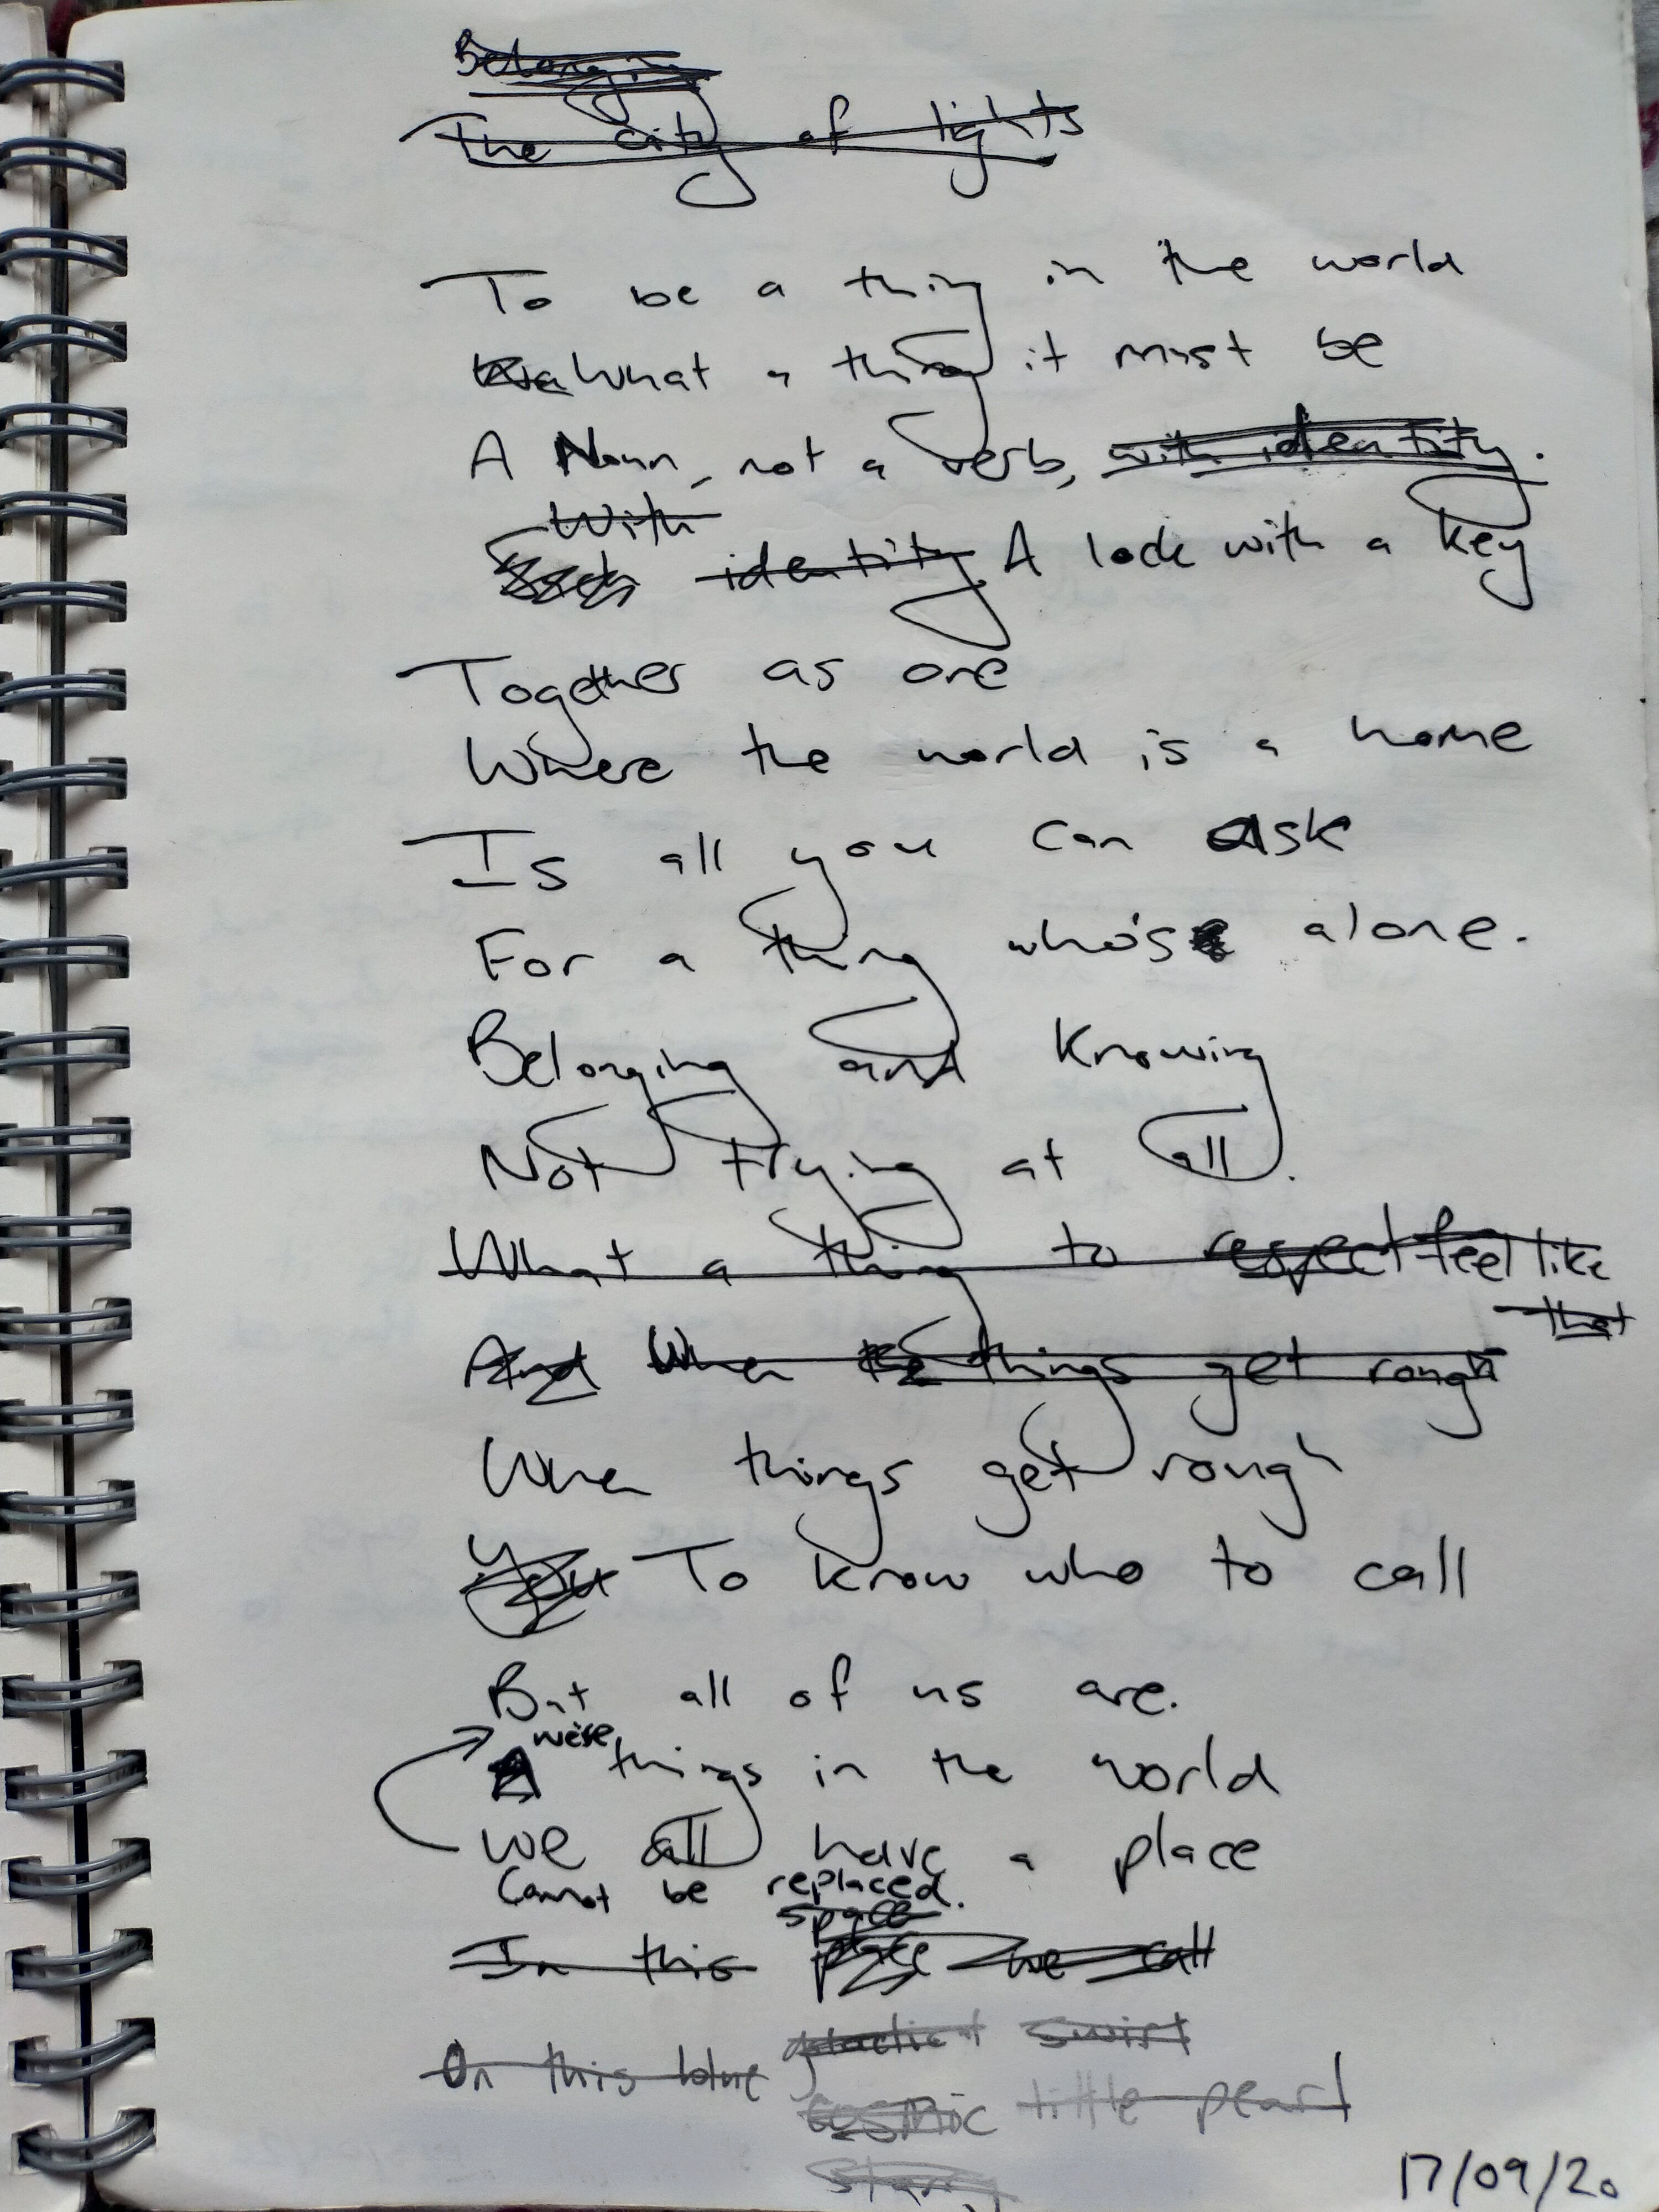 Belonging
The city of lights
To be a thing in the world
What a thing it must be
A Noun, not a verb, with identity.
With
identity A lock with a key
Together as one
Where the world is a home
Is all you can ask
For a thing who's alone.
Belonging and Knowing
Not Trying at all.
What a thing to respect feel like
that
And When the things get rough
When things get rough
You To know who to call
But all of us are.
we're
things in the world
We all have a place
Cannot be replaced.
space
In this place we call
galactical swirl
On this blue
cosmic little pearl
starry
17/09/20